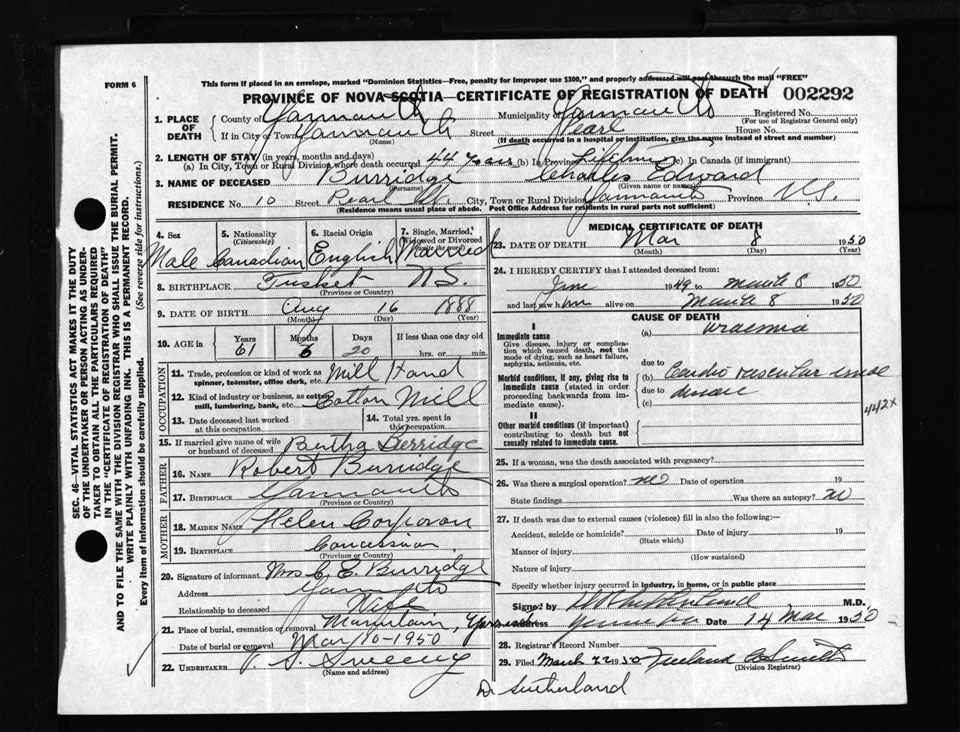 FORM 6
This form if placed in an envelope, marked "Dominion Statistics—Free, penalty for improper use $300," and properly addressed will pass through the mail "FREE"
PROVINCE OF NOVA SCOTIA—CERTIFICATE OF REGISTRATION OF DEATH 002292
1. PLACE OF DEATH
County of Yarmouth Municipality of Yarmouth Registered No.
(For use of Registrar General only)
If in City or Town Yarmouth Street Pearl House No.
(Name) (If death occurred in a hospital or institution, give the name instead of street and number)
2. LENGTH OF STAY (in years, months and days)
(a) In City, Town or Rural Division where death occurred 44 years (b) In Province Lifetime (c) In Canada (if immigrant)
3. NAME OF DECEASED Burridge Charles Edward
(Surname) (Given name or names)
RESIDENCE No. 10 Street Pearl St. City, Town or Rural Division Yarmouth Province N.S.
(Residence means usual place of abode. Post Office Address for residents in rural parts not sufficient)
4. Sex 5. Nationality (Citizenship) 6. Racial Origin 7. Single, Married, Widowed or Divorced (write the word)
Male Canadian English Married
8. BIRTHPLACE Tusket N.S.
(Province or Country)
9. DATE OF BIRTH Aug 16 1888
(Month) (Day) (Year)
10. AGE in Years Months Days If less than one day old
61 6 20 hrs. or min.
OCCUPATION
11. Trade, profession or kind of work as spinner, teamster, office clerk, etc. Mill Hand
12. Kind of industry or business, as cotton mill, lumbering, bank, etc. Cotton Mill
13. Date deceased last worked at this occupation
14. Total yrs. spent in this occupation
15. If married give name of wife or husband of deceased Bertha Berridge
FATHER
16. NAME Robert Burridge
17. BIRTHPLACE Yarmouth
MOTHER
18. MAIDEN NAME Helen Corporon
19. BIRTHPLACE Concession
(Province or Country)
20. Signature of informant Mrs C. E. Burridge
Address Yarmouth
Relationship to deceased Wife
21. Place of burial, cremation or removal Mountain,
Date of burial or removal Mar/10-1950
22. UNDERTAKER V. S. Sweeny
(Name and address)
MEDICAL CERTIFICATE OF DEATH
23. DATE OF DEATH Mar 8 1950
(Month) (Day) (Year)
24. I HEREBY CERTIFY that I attended deceased from:
June 1949 to March 8 1950
and last saw him alive on March 8 1950
CAUSE OF DEATH
I
Immediate cause (a) uraemia
Give disease, injury or complication which caused death, not the mode of dying, such as heart failure, asphyxia, asthenia, etc.
due to
Morbid conditions, if any, giving rise to immediate cause (stated in order proceeding backwards from immediate cause).
(b) Cardio vascular renal
due to disease
(c)
442x
II
Other morbid conditions (if important) contributing to death but not causally related to immediate cause.
25. If a woman, was the death associated with pregnancy?
26. Was there a surgical operation? no Date of operation 19
State findings Was there an autopsy? no
27. If death was due to external causes (violence) fill in also the following:—
Accident, suicide or homicide? Date of injury 19
(State which)
Manner of injury
(How sustained)
Nature of injury
Specify whether injury occurred in industry, in home, or in public place
Signed by M.D.
Address Yarmouth Date 14 Mar 1950
28. Registrar's Record Number
29. Filed March 22 1950 Freeland Smith
(Division Registrar)
D. Sutherland
SEC. 46—VITAL STATISTICS ACT MAKES IT THE DUTY
OF THE UNDERTAKER OR PERSON ACTING AS UNDER-
TAKER TO OBTAIN ALL THE PARTICULARS REQUIRED
IN THE "CERTIFICATE OF REGISTRATION OF DEATH"
AND TO FILE THE SAME WITH THE DIVISION REGISTRAR WHO SHALL ISSUE THE BURIAL PERMIT.
WRITE PLAINLY WITH UNFADING INK. THIS IS A PERMANENT RECORD.
Every item of information should be carefully supplied. (See reverse side for instructions.)